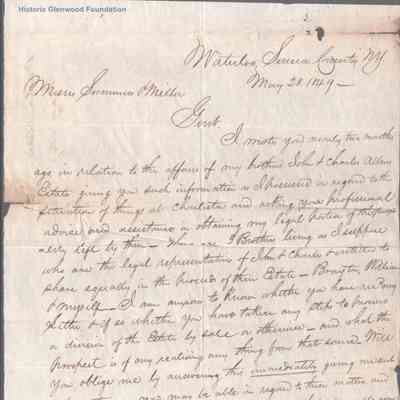 Historic Glenwood Foundation
2
Waterloo, Seneca County NY
May 28. 1849 —
Messrs & Miller
Gent.
I wrote you nearly two months
ago in relation to the affairs of my brothers John & Charles Allens
Estate giving you such information as I possessed in regard to the
situation of things at and asking your professional
advice and assistance in obtaining my legal portion of the property
left by them — There are 3 Brothers living as I suppose
who are the legal representatives of John & Charles & entitled to
share equally in the proceeds of their Estate — William
& myself — I am anxious to know whether you have rec'd my
letter & if so whether you have taken any steps to procure
a division of the Estate by sale or otherwise — and what the
prospect is if any realizing any thing from that source. Will
you oblige me by answering this immediately giving me such
may be able in regard to these matters and